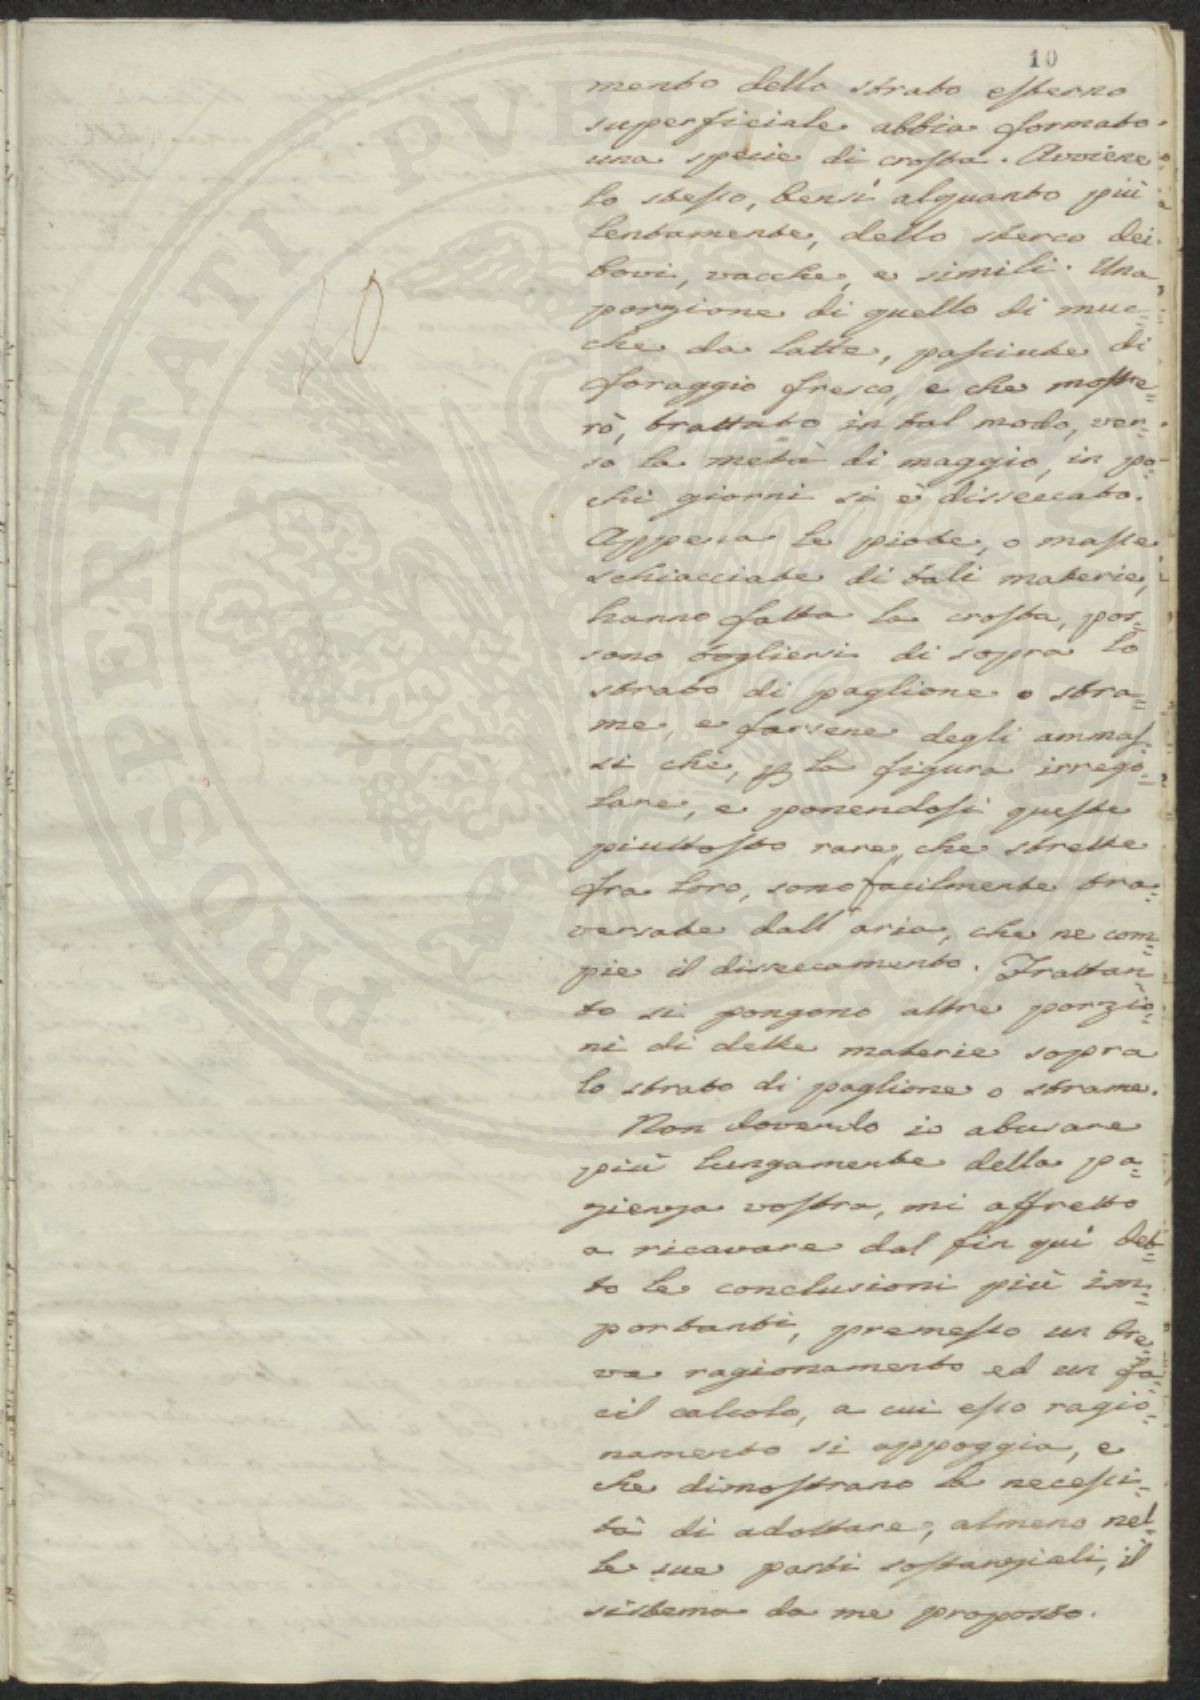 10
mento dello strato esterno
superficiale abbia formato
una specie di crosta. Avviene
lo stesso, bensì alquanto più
lentamente, dello sterco dei
bovi, vacche, e simili. Una
porzione di quello di muc=
che da latte, pasciute di
foraggio fresco, e che mostre=
rò, trattato in tal modo, ver=
so la metà di maggio, in po=
chi giorni si è disseccato.
Appena le piote, o masse
schiacciate di tali materie,
hanno fatta la crosta, pos=
sono togliersi di sopra lo
strato di paglione o stra=
me, e farsene degli ammas=
si che, p la figura irrego=
lare, e ponendosi queste
piuttosto rare, che strette
fra loro, sono facilmente tra=
versate dall'aria, che ne com=
pie il disseccamento. Frattan=
to si pongono altre porzio=
ni di dette materie sopra
lo strato di paglione o strame.
Non dovendo io abusare
più lungamente della pa=
zienza vostra, mi affretto
a ricavare dal fin quì det=
to le conclusioni più im=
portanti, premesso un bre=
ve ragionamento ed un fa=
cil calcolo, a cui esso ragio=
namento si appoggia, e
che dimostrano la necessi=
tà di adottare, almeno nel=
le sue parti sostanziali, il
sistema da me proposto.
10
PROSPERITATI PVBLICAE